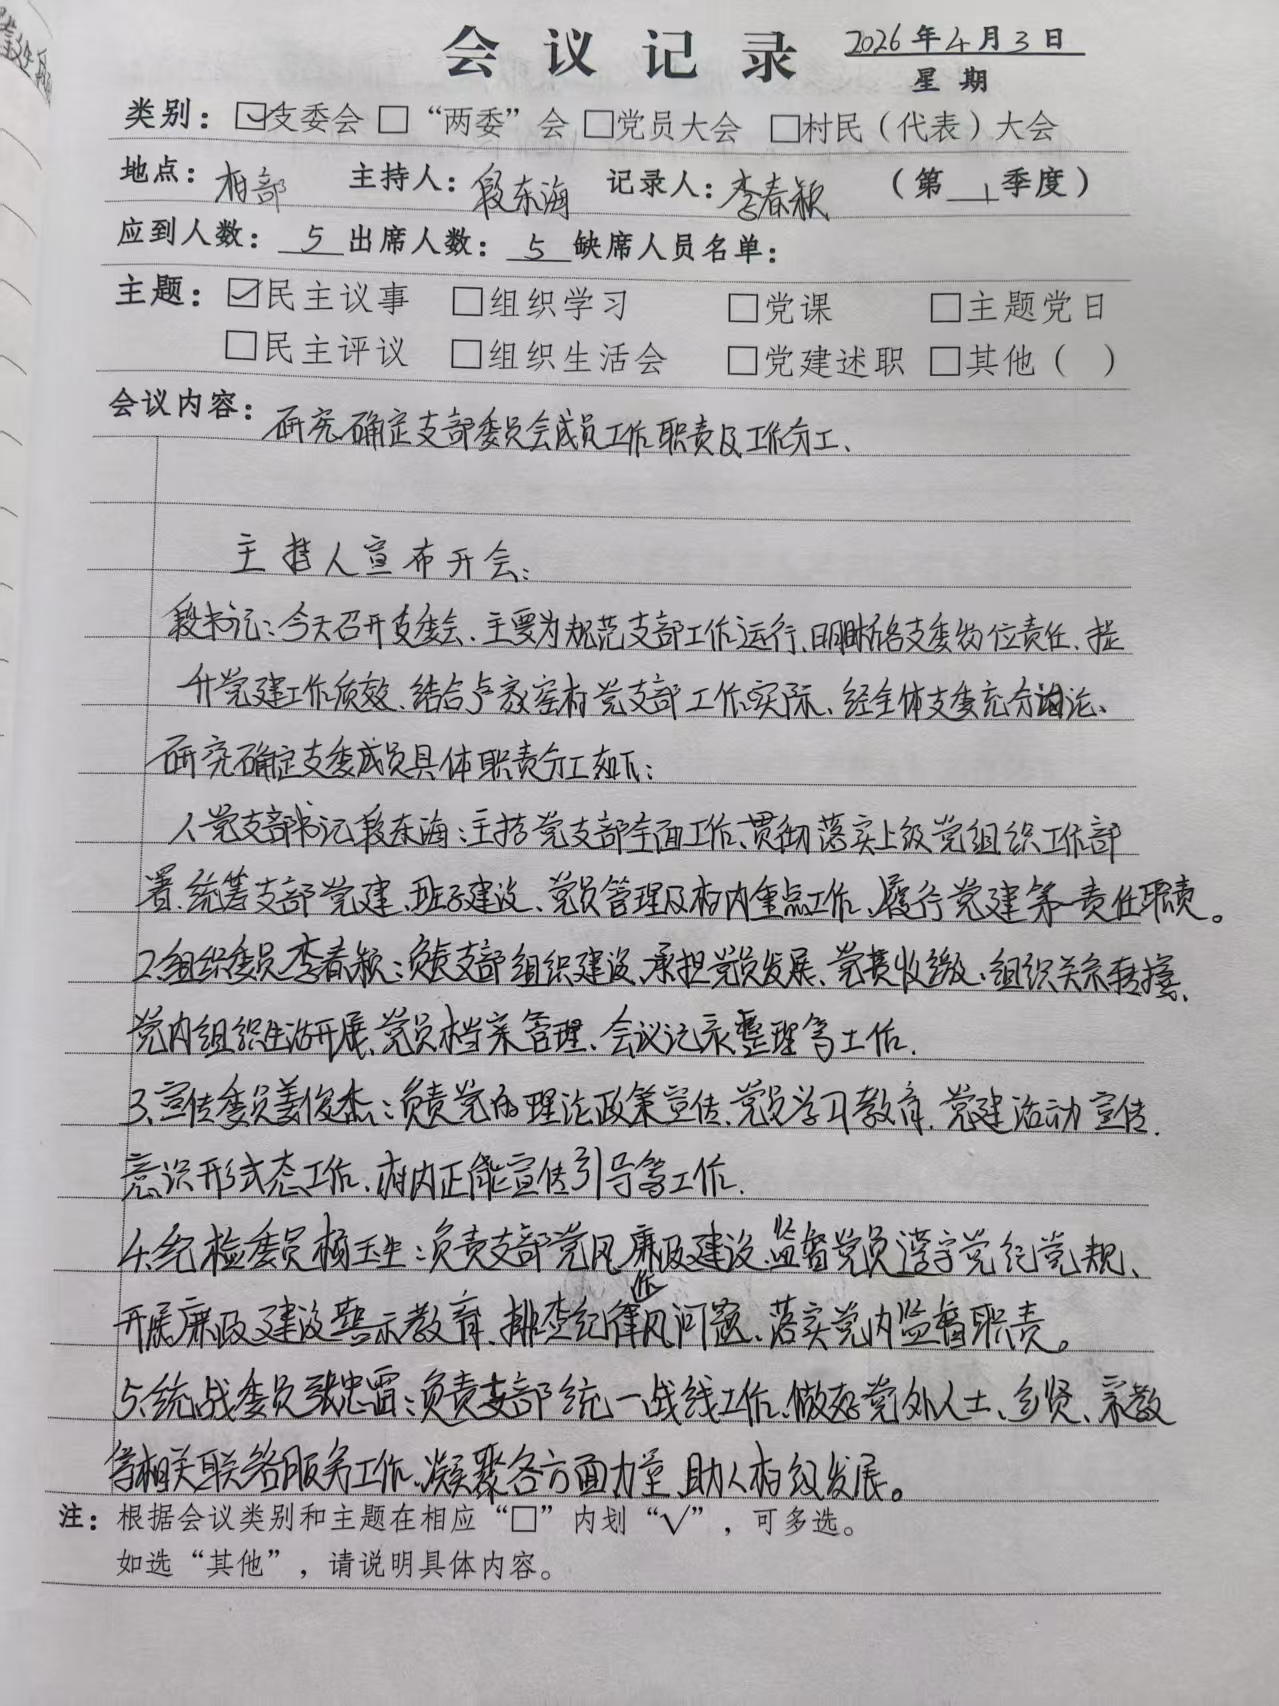 会议记录 2026年4月3日
星期
类别：☑支委会 □“两委”会 □党员大会 □村民（代表）大会
地点：村部 主持人：段东海 记录人：李春颖 （第1季度）
应到人数：5 出席人数：5 缺席人员名单：
主题：☑民主议事 □组织学习 □党课 □主题党日
□民主评议 □组织生活会 □党建述职 □其他（ ）
会议内容：研究确定支部委员会成员工作职责及工作分工、
主持人宣布开会：
段书记：今天召开支委会、主要为规范支部工作运行、明晰各支委岗位责任、提
升党建工作质效、结合卢家窑村党支部工作实际、经全体支委充分讨论、
研究确定支委成员具体职责分工如下：
1、党支部书记段东海：主持党支部全面工作、贯彻落实上级党组织工作部
署、统筹支部党建、班子建设、党员管理及村内重点工作、履行党建第一责任职责。
2、组织委员李春颖：负责支部组织建设、承担党员发展、党费收缴、组织关系转接、
党内组织生活开展、党员档案管理、会议记录整理等工作.
3、宣传委员姜俊杰：负责党的理论政策宣传、党员学习教育、党建活动宣传、
意识形式态工作、村内正能宣传引导等工作.
4、纪检委员杨玉生：负责支部党风廉政建设、监督党员遵守党纪党规、
开展廉政建设警示教育、排查纪律作风问题、落实党内监督职责。
5、统战委员张忠雷：负责支部统一战线工作、做好党外人士、乡贤、宗教
等相关联络服务工作、凝聚各方面力量、助力村级发展。
注：根据会议类别和主题在相应“□”内划“√”，可多选。
如选“其他”，请说明具体内容。